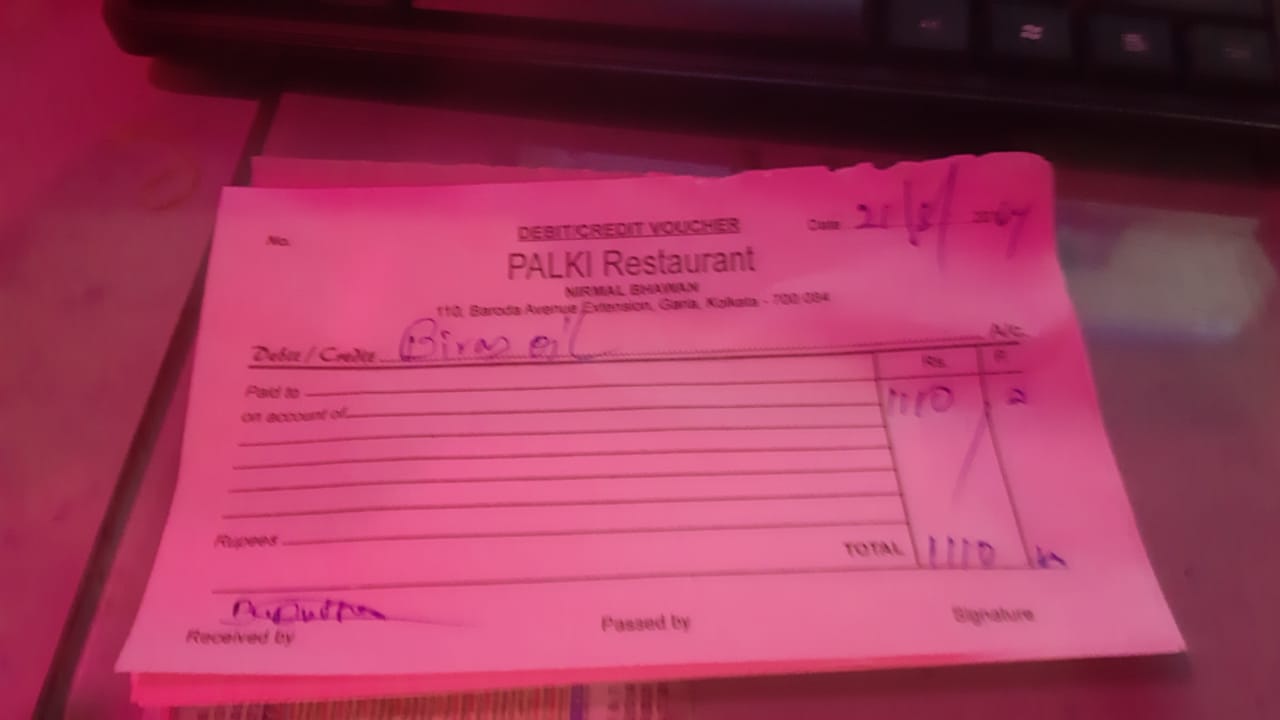 DEBIT/CREDIT VOUCHER
No. Date 21/8/
PALKI Restaurant
NIRMAL BHAWAN
110, Baroda Avenue Extension, Garia, Kolkata - 700 084
Debit / Credit A/c.
Rs. P.
Paid to 1110
on account of
Rupees
TOTAL 1110
Received by Passed by Signature